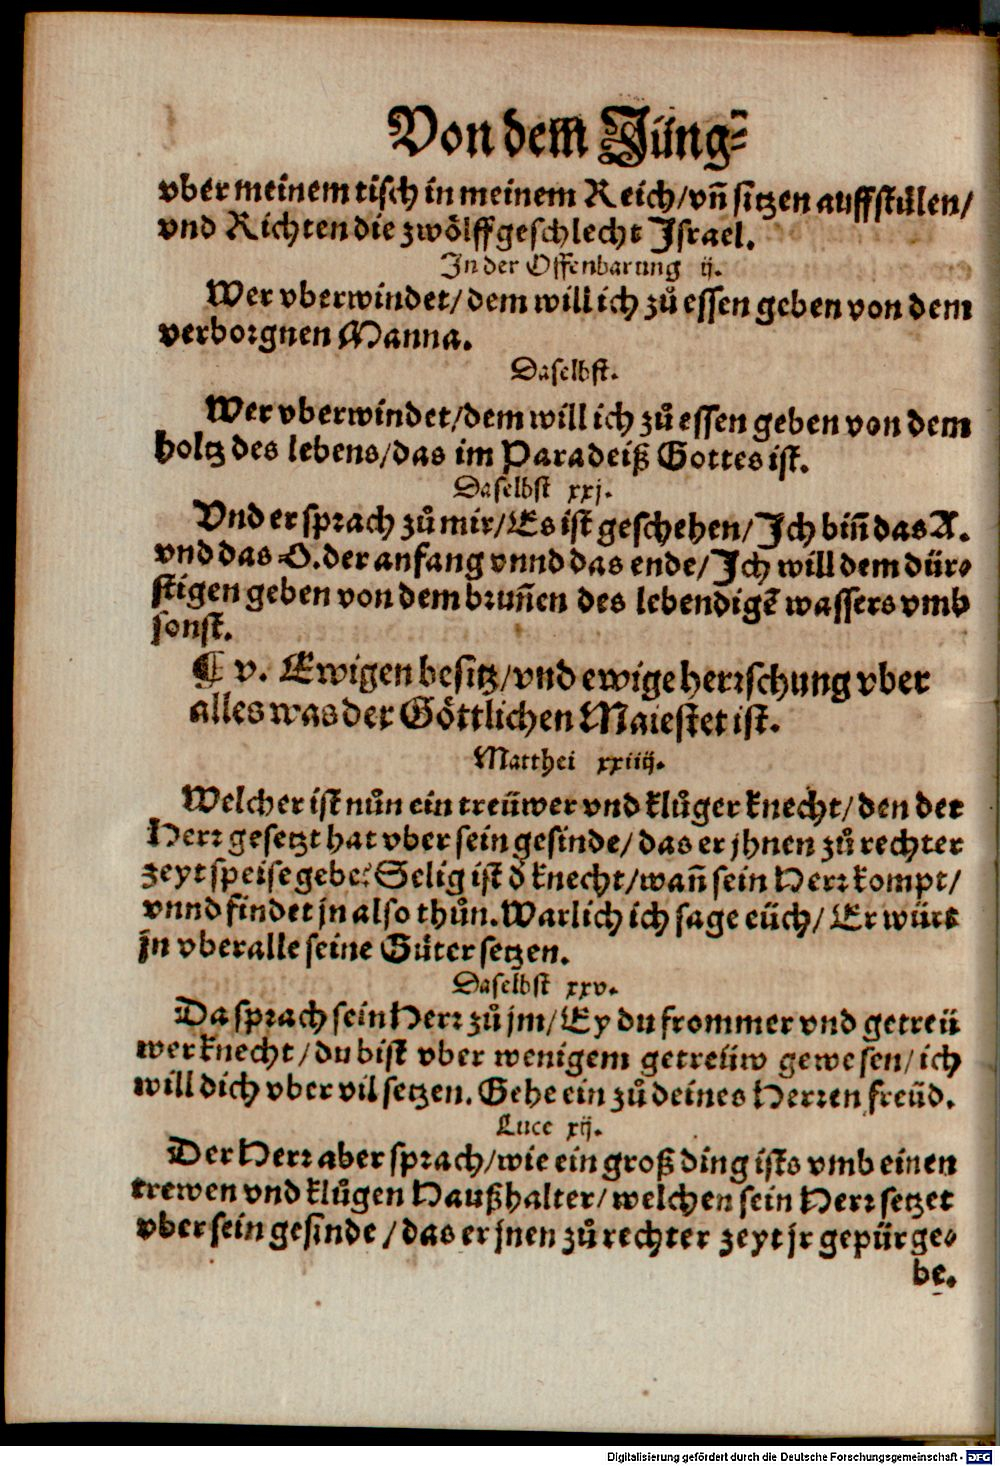 Von dem Jüng⸗
vber meinem tisch in meinem Reich/vñ sitzen auff stůlen/
vnd Richten die zwölff geschlecht Israel.
In der Offenbarung ij.
Wer vberwindet/dem will ich zů essen geben von dem
verborgnen Manna.
Daselbst.
Wer vberwindet/dem will ich zů essen geben von dem
holtz des lebens/das im Paradeiß Gottes ist.
Daselbst xxj.
Vnd er sprach zů mir/Es ist geschehen/Jch biñ das A.
vnd das O. der anfang vnnd das ende/Jch will dem dür⸗
stigen geben von dem bruñen des lebendigē wassers vmb
sonst.
¶ v. Ewigen besitz/vnd ewige herrschung vber
alles was der Göttlichen Maiestet ist.
Matthei xxiiij.
Welcher ist nůn ein treüwer vnd klůger knecht/den der
Herr gesetzt hat vber sein gesinde/das er jhnen zů rechter
zeyt speise gebe? Selig ist d̕ knecht/wañ sein Herr kompt/
vnnd findet jn also thůn. Warlich ich sage eüch/Er würt
jn vber alle seine Gůter setzen.
Daselbst xxv.
Da sprach sein Herr zů jm/Ey du frommer vnd getreü
wer knecht/du bist vber wenigem getreüw gewesen/ich
will dich vber vil setzen. Gehe ein zů deines Herren freüd.
Luce xij.
Der Herr aber sprach/wie ein groß ding ists vmb einen
trewen vnd klůgen Haußhalter/welchen sein Herr setzet
vber sein gesinde/das er jnen zů rechter zeyt jr gepür ge⸗
be.
Digitalisierung gefördert durch die Deutsche Forschungsgemeinschaft - DFG